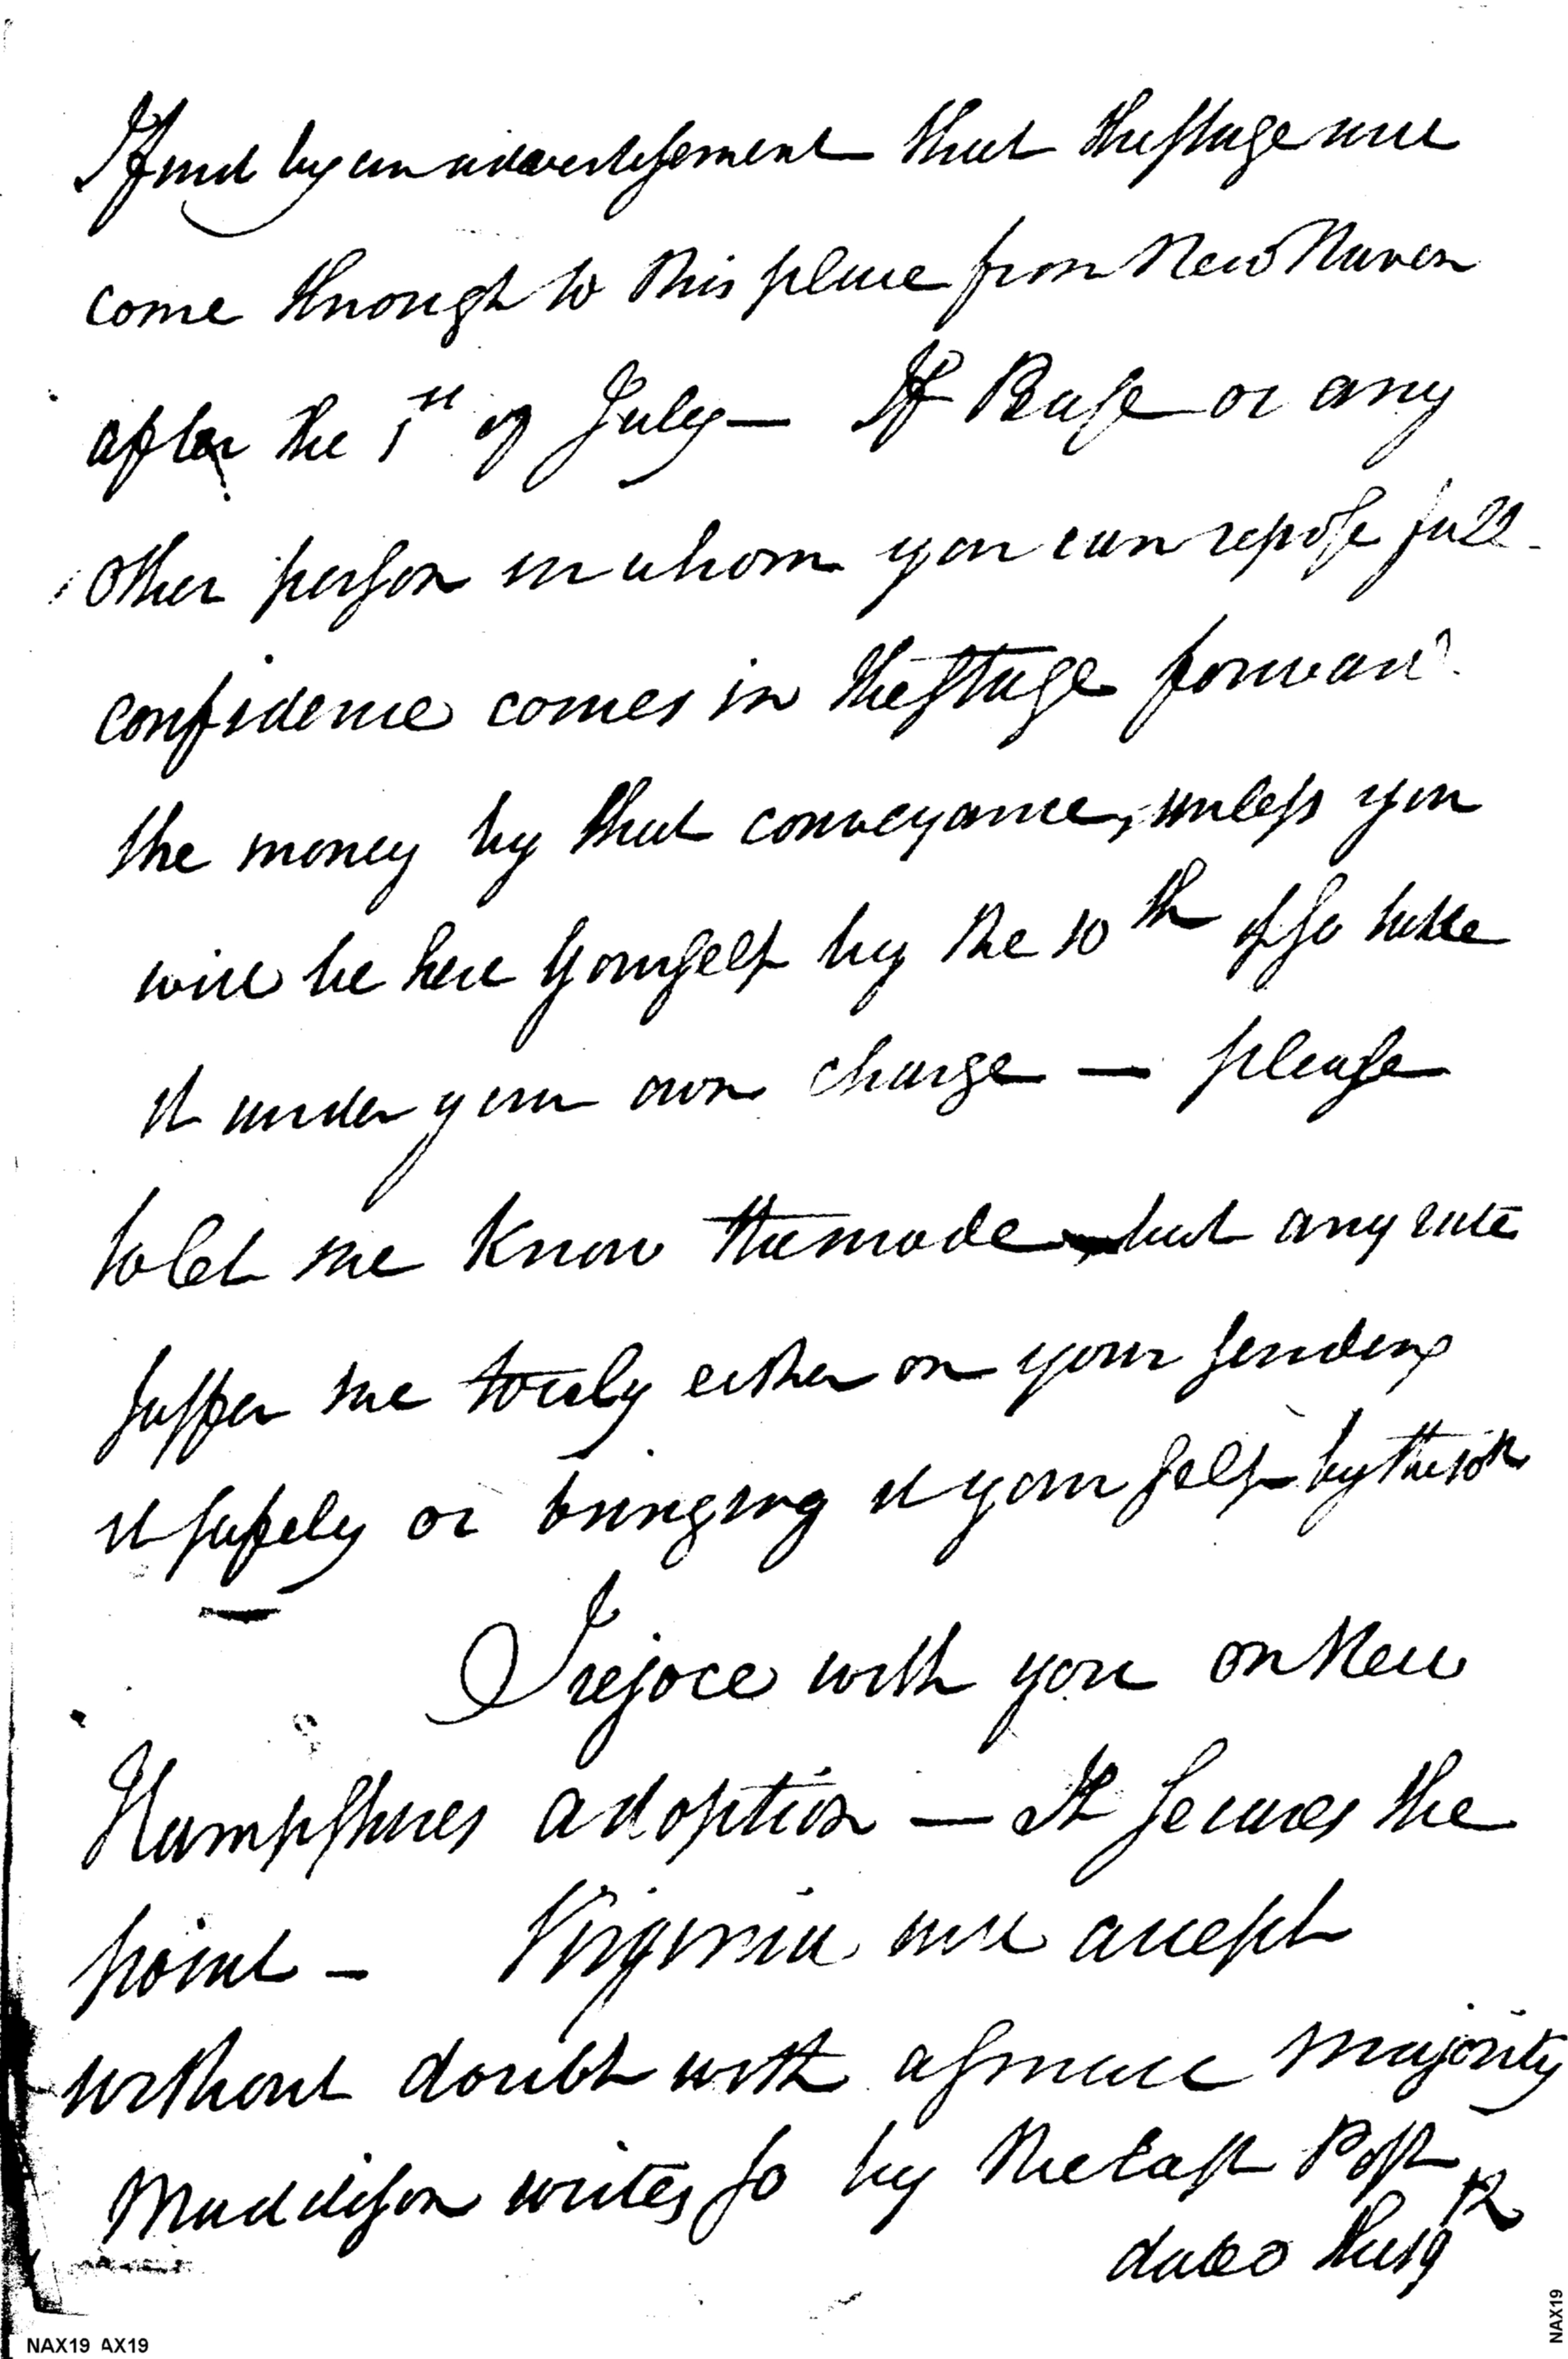 I find by an advertisement that the stage will
come through to this place from New Haven
after the 1st of July — If Base or any
other person in whom you can repose full
confidence comes in the stage forward
the money by that conveyance, unless you
will be here yourself by the 10th if so take
it under your own charge — please
to let me know the mode but any rate
suffer me to rely either on your sending
it safely or bringing it yourself by the 10th
I rejoce with you on New
Hampshires adoption — It secures the
point — Virginia will accept
without doubt with a small majority
Maddison writes so by the last Post
dated the 19th
NAX19 AX19
NAX19